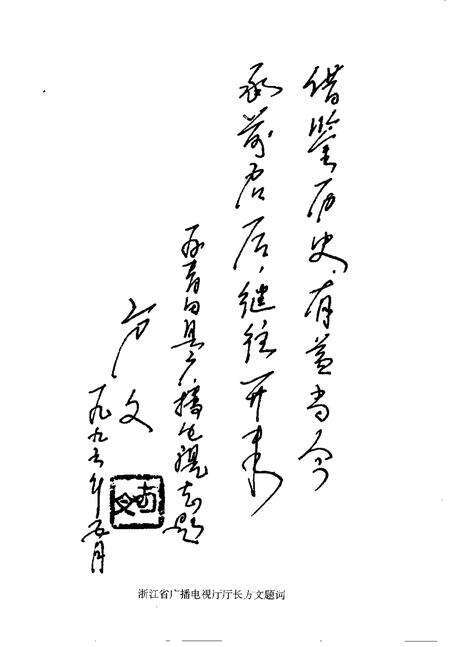 借鉴历史，有益当今
承前启后，继往开来
为青田县广播电视志题
方文
一九九六年五月
浙江省广播电视厅厅长方文题词